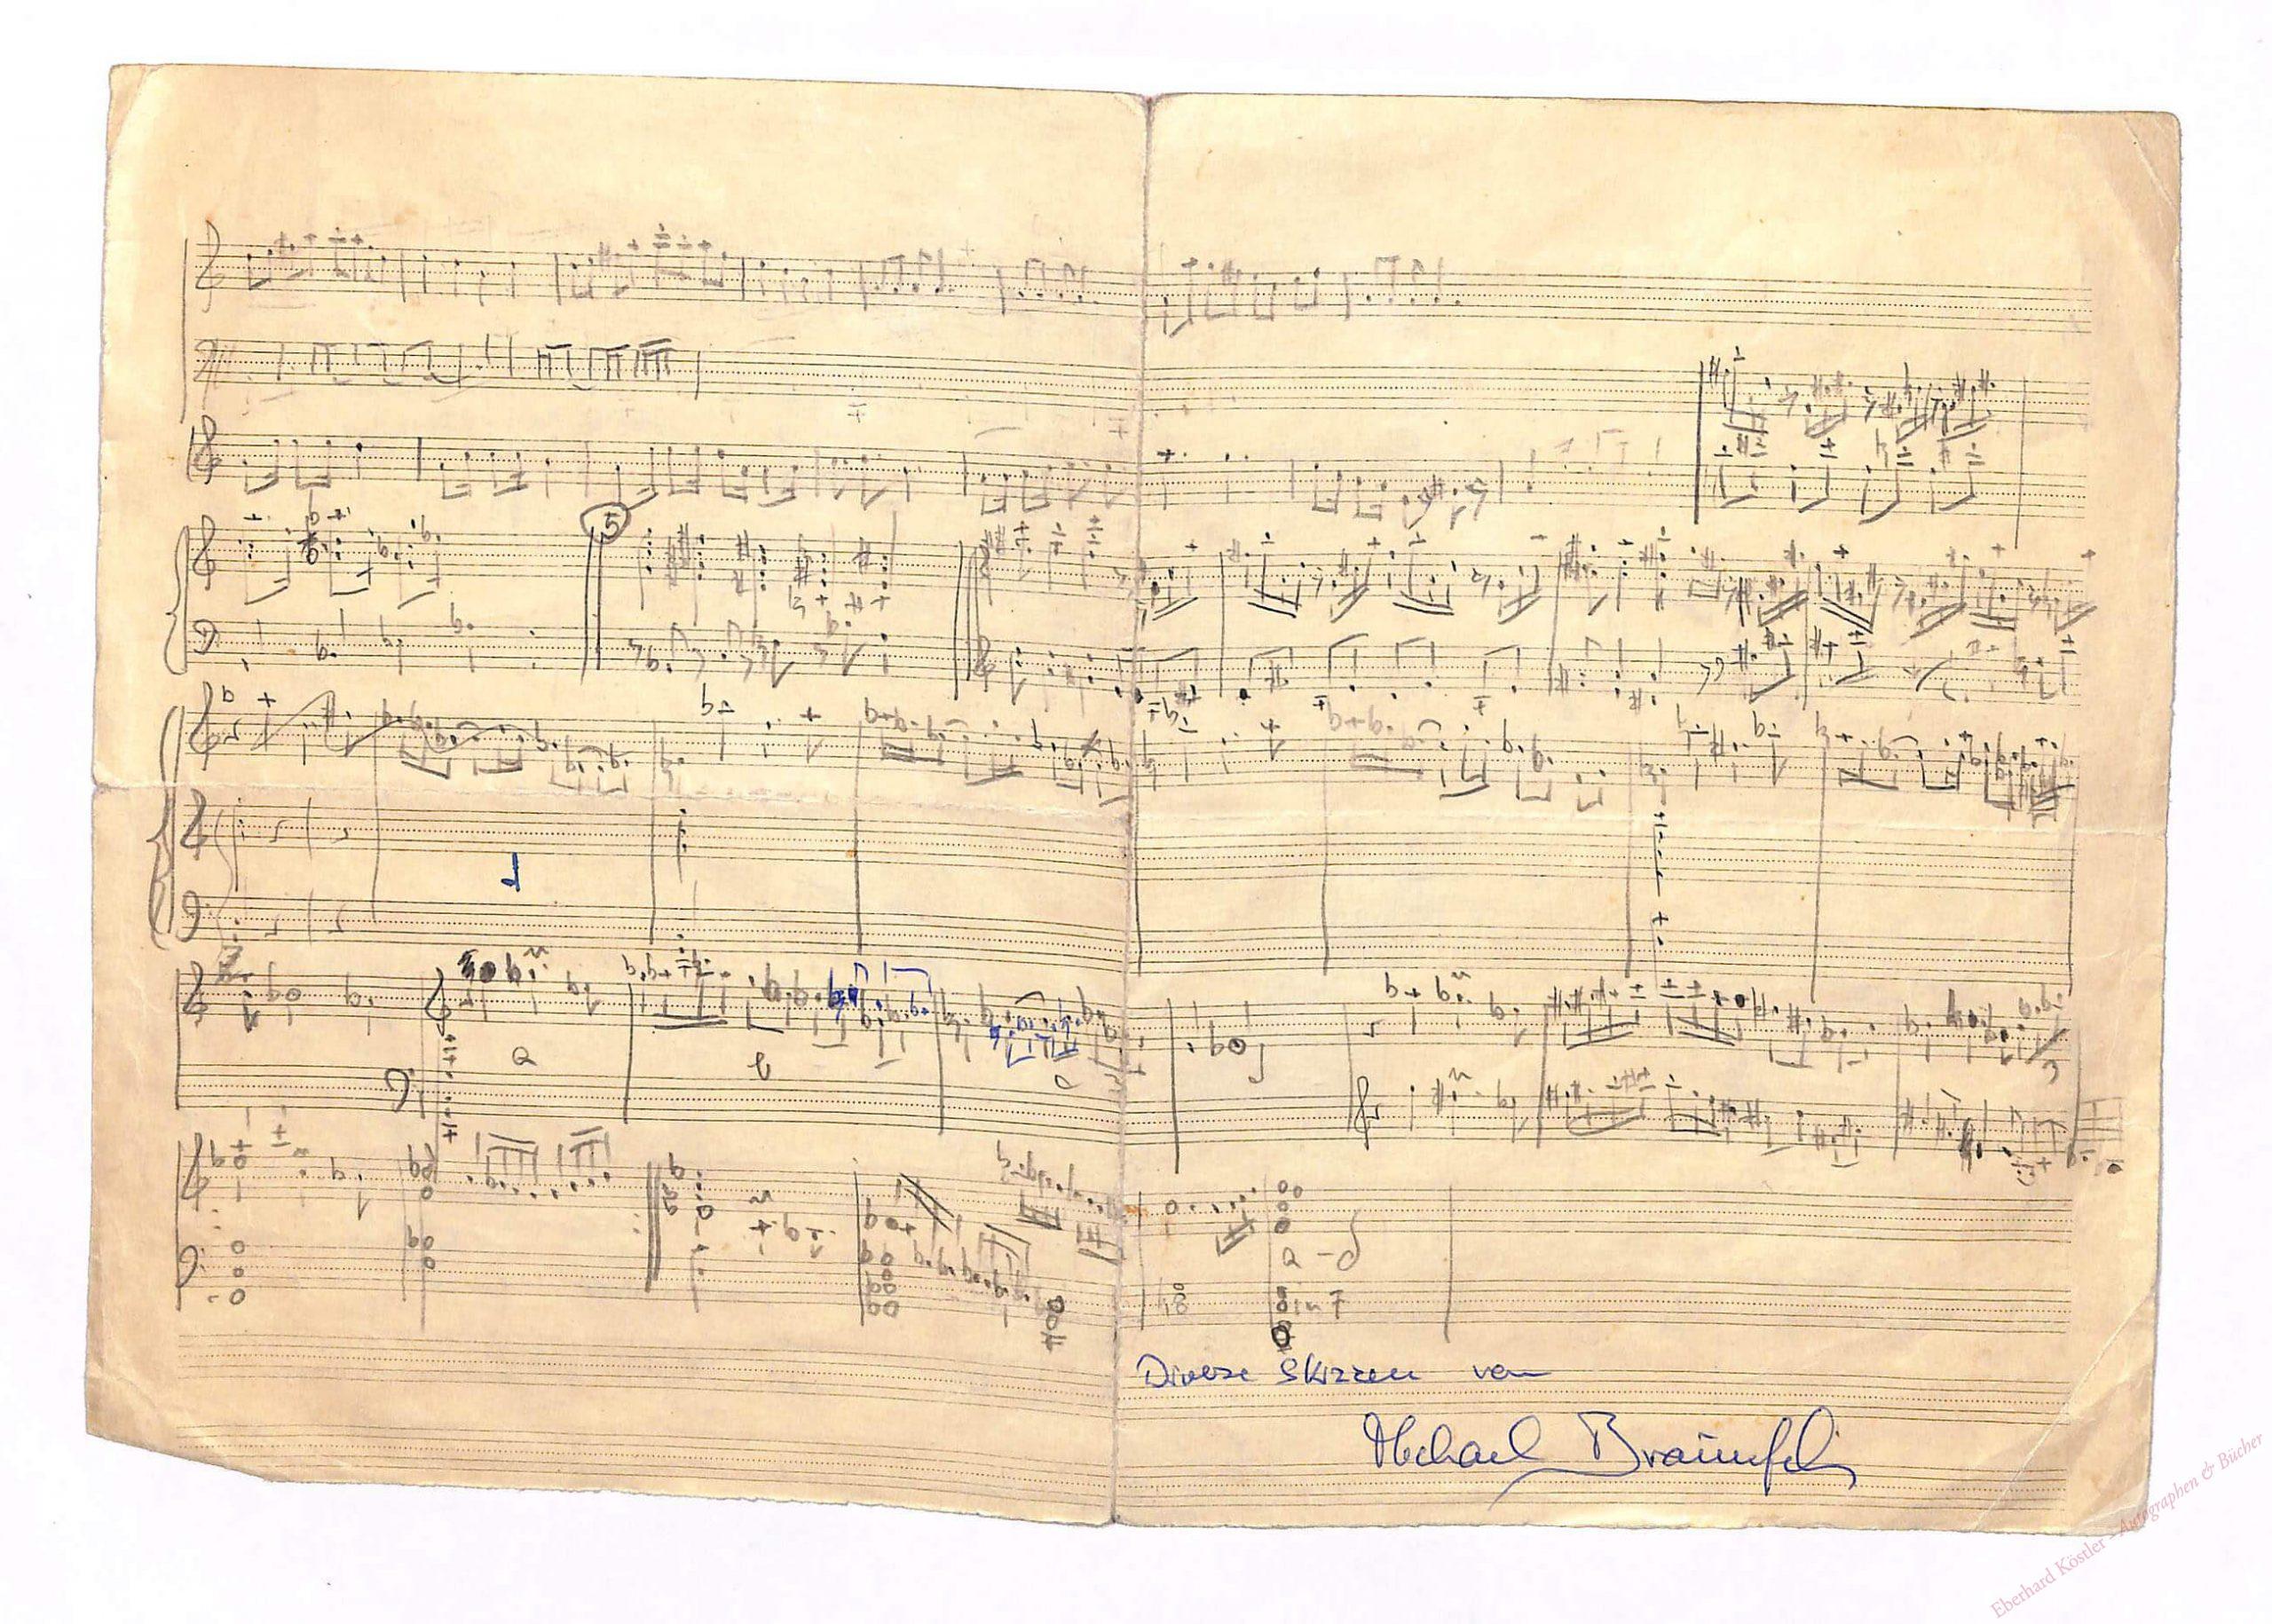 5
Diverse Skizzen von
Michael Braunfels
Eberhard Köstler - Autographen & Bücher